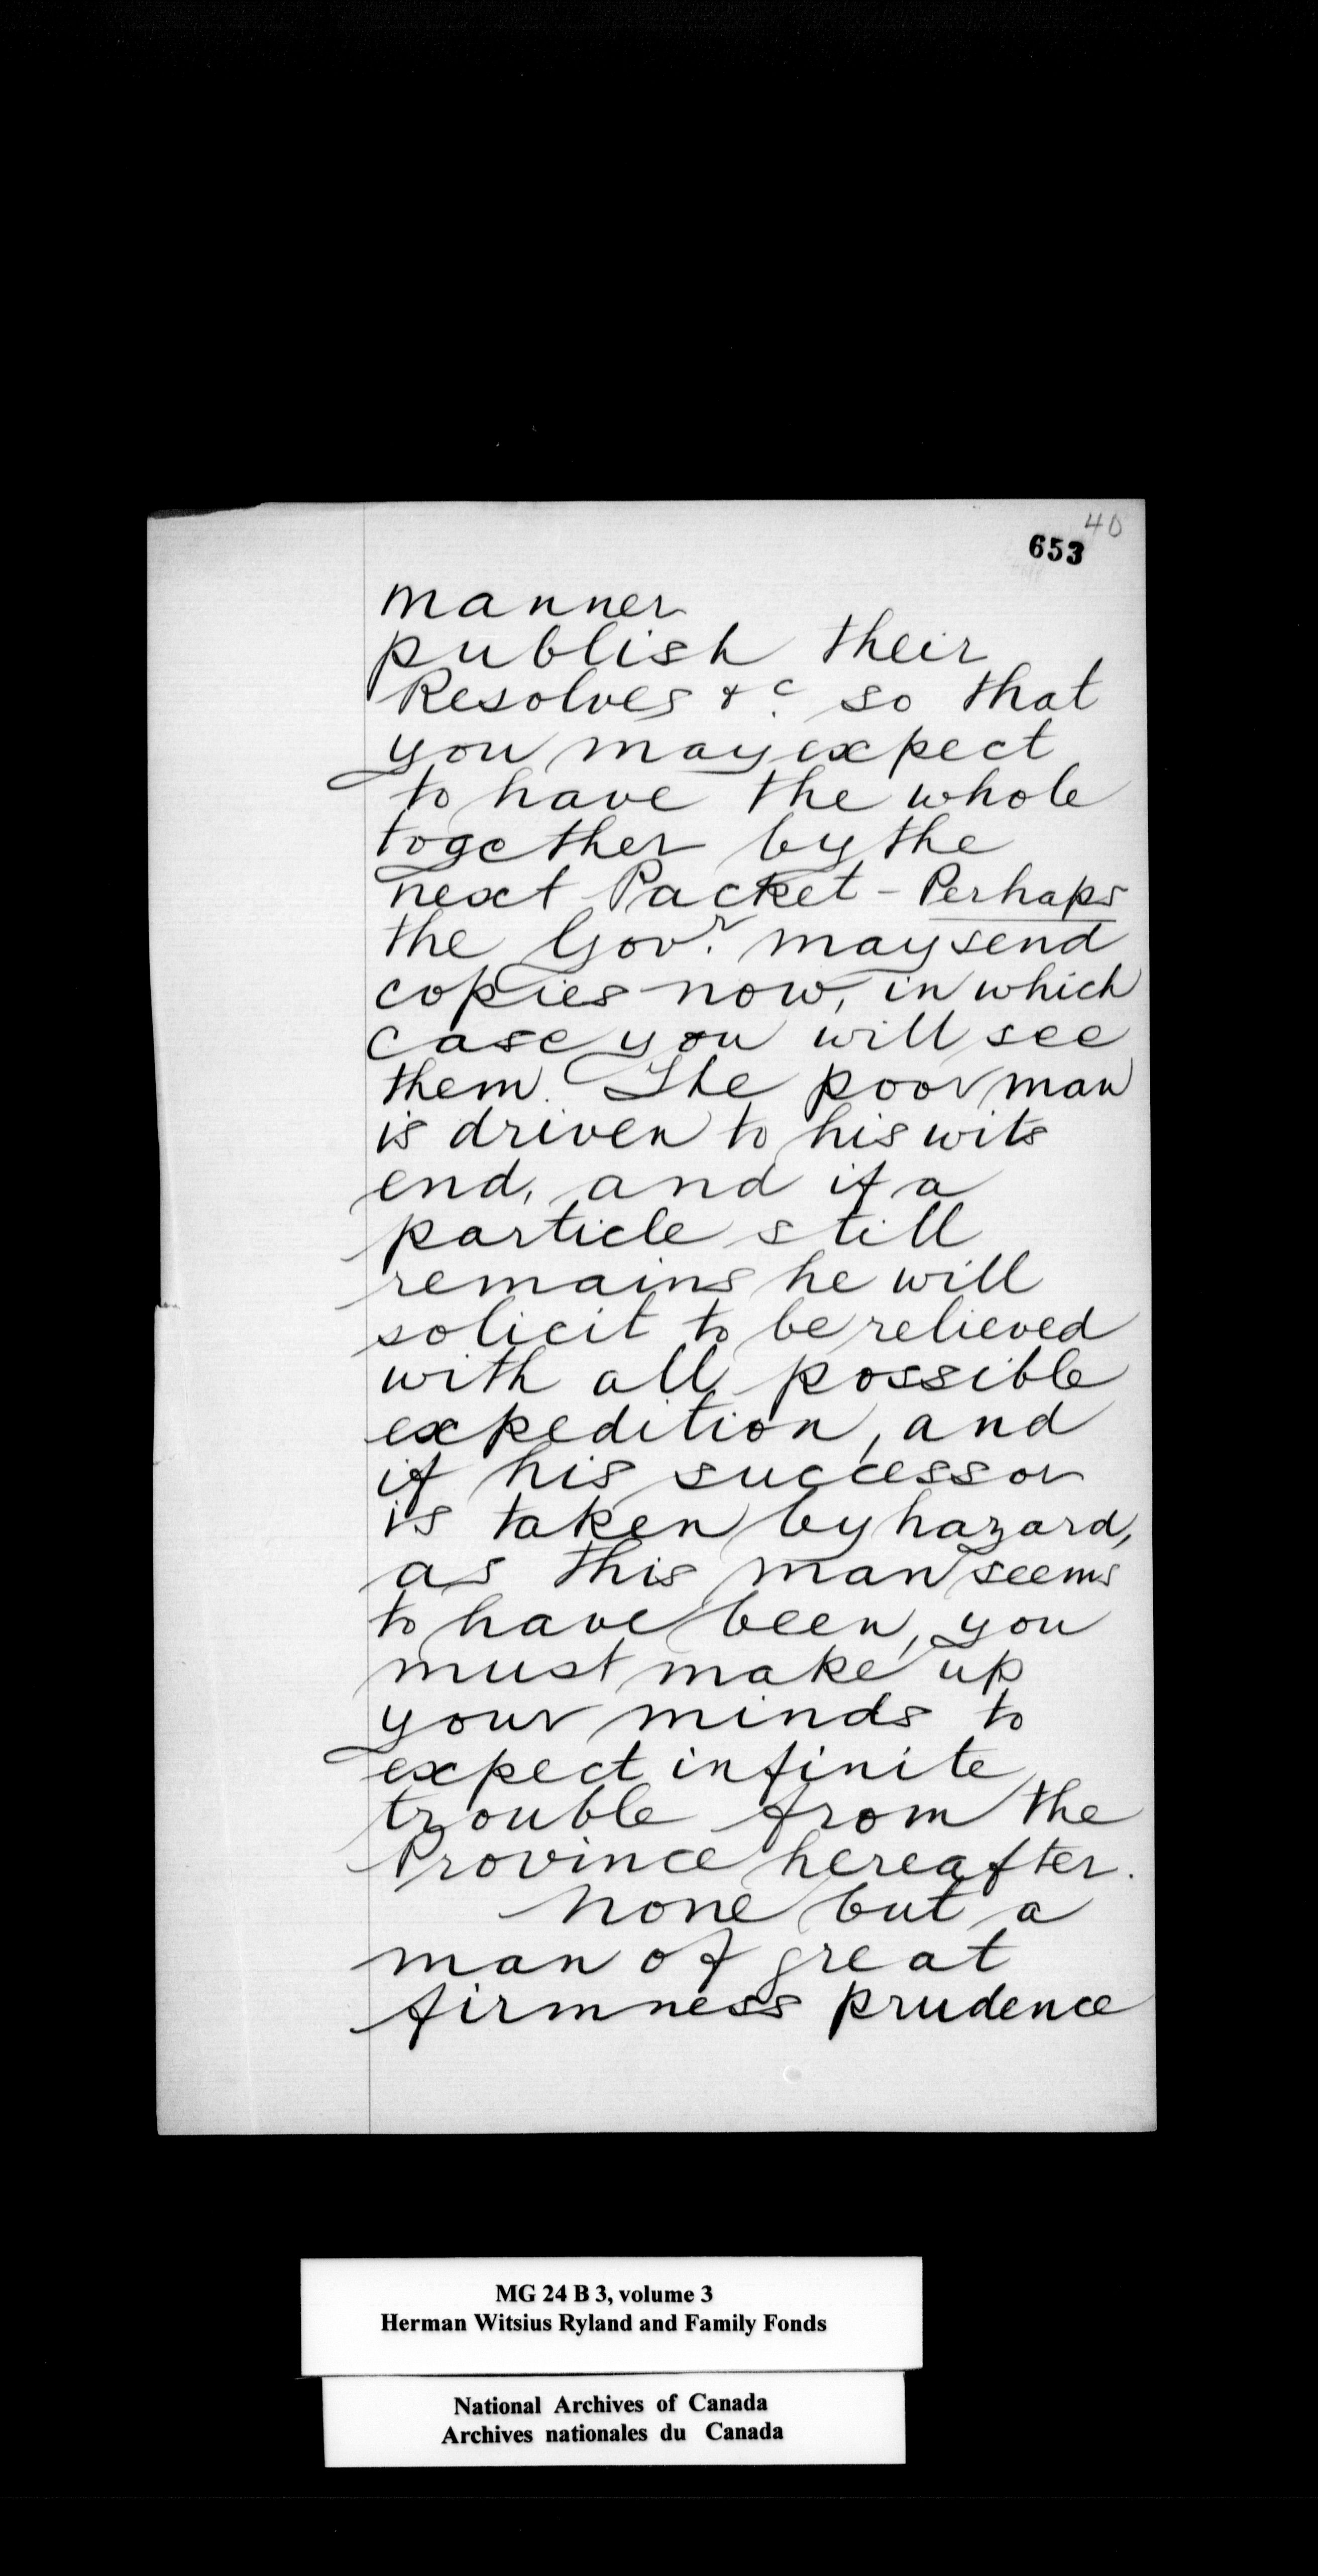 40
653
manner
publish their
Resolves &c. so that
you may expect
to have the whole
together by the
next Packet - Perhaps
the Govr. may send
copies now, in which
case you will see
them. The poor man
is driven to his wits
end, and if a
particle still
remains he will
solicit to be relieved
with all possible
expedition, and
if his successor
is taken by hazard,
as this man seems
to have been, you
must make up
your minds to
expect infinite
trouble from the
Province hereafter.
None but a
man of great
firmness prudence
MG 24 B 3, volume 3
Herman Witsius Ryland and Family Fonds
National Archives of Canada
Archives nationales du Canada